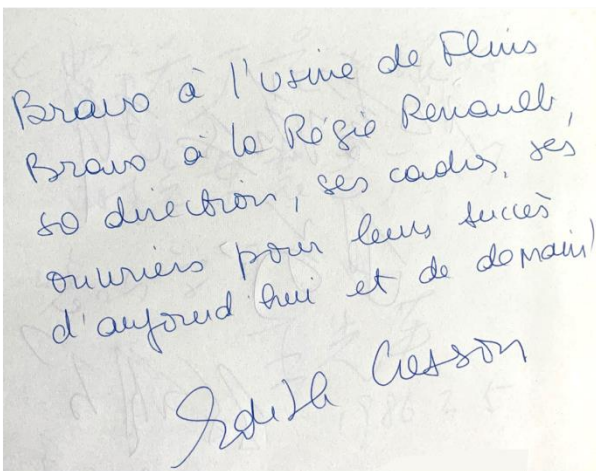 Bravo à l'usine de Flins
Bravo à la Régie Renault,
sa direction, ses cadres, ses
ouvriers pour leurs succès
d'aujourd'hui et de demain!
Edith Cresson